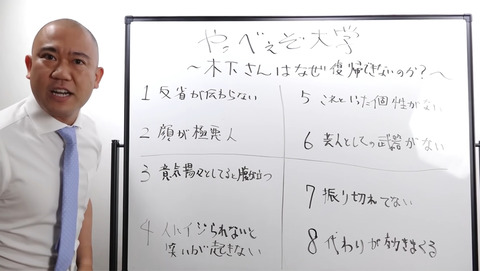 やっべぇぞ大学
～木下さんはなぜ復帰できないのか？～
1 反省が伝わらない
2 顔が極悪人
3 意気揚々としてると腹立つ
4 人にイジられないと
笑いが起きない
5 これといった個性がない
6 芸人としての武器がない
7 振り切れてない
8 代わりが効きまくる